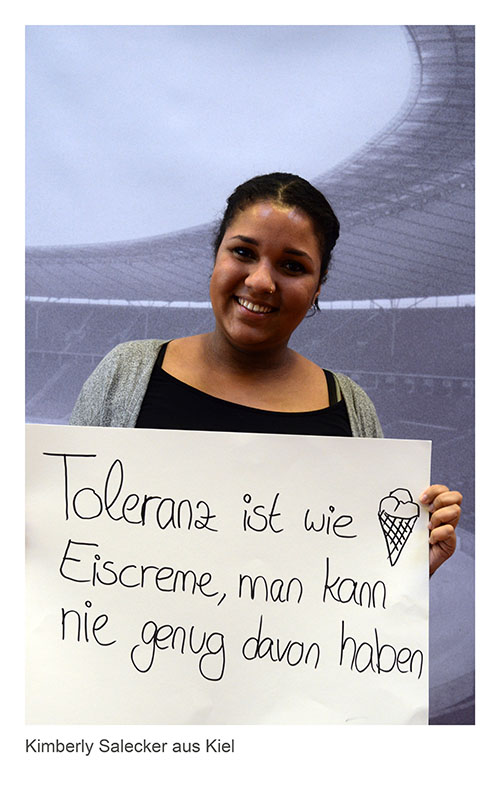 Toleranz ist wie
Eiscreme, man kann
nie genug davon haben
Kimberly Salecker aus Kiel